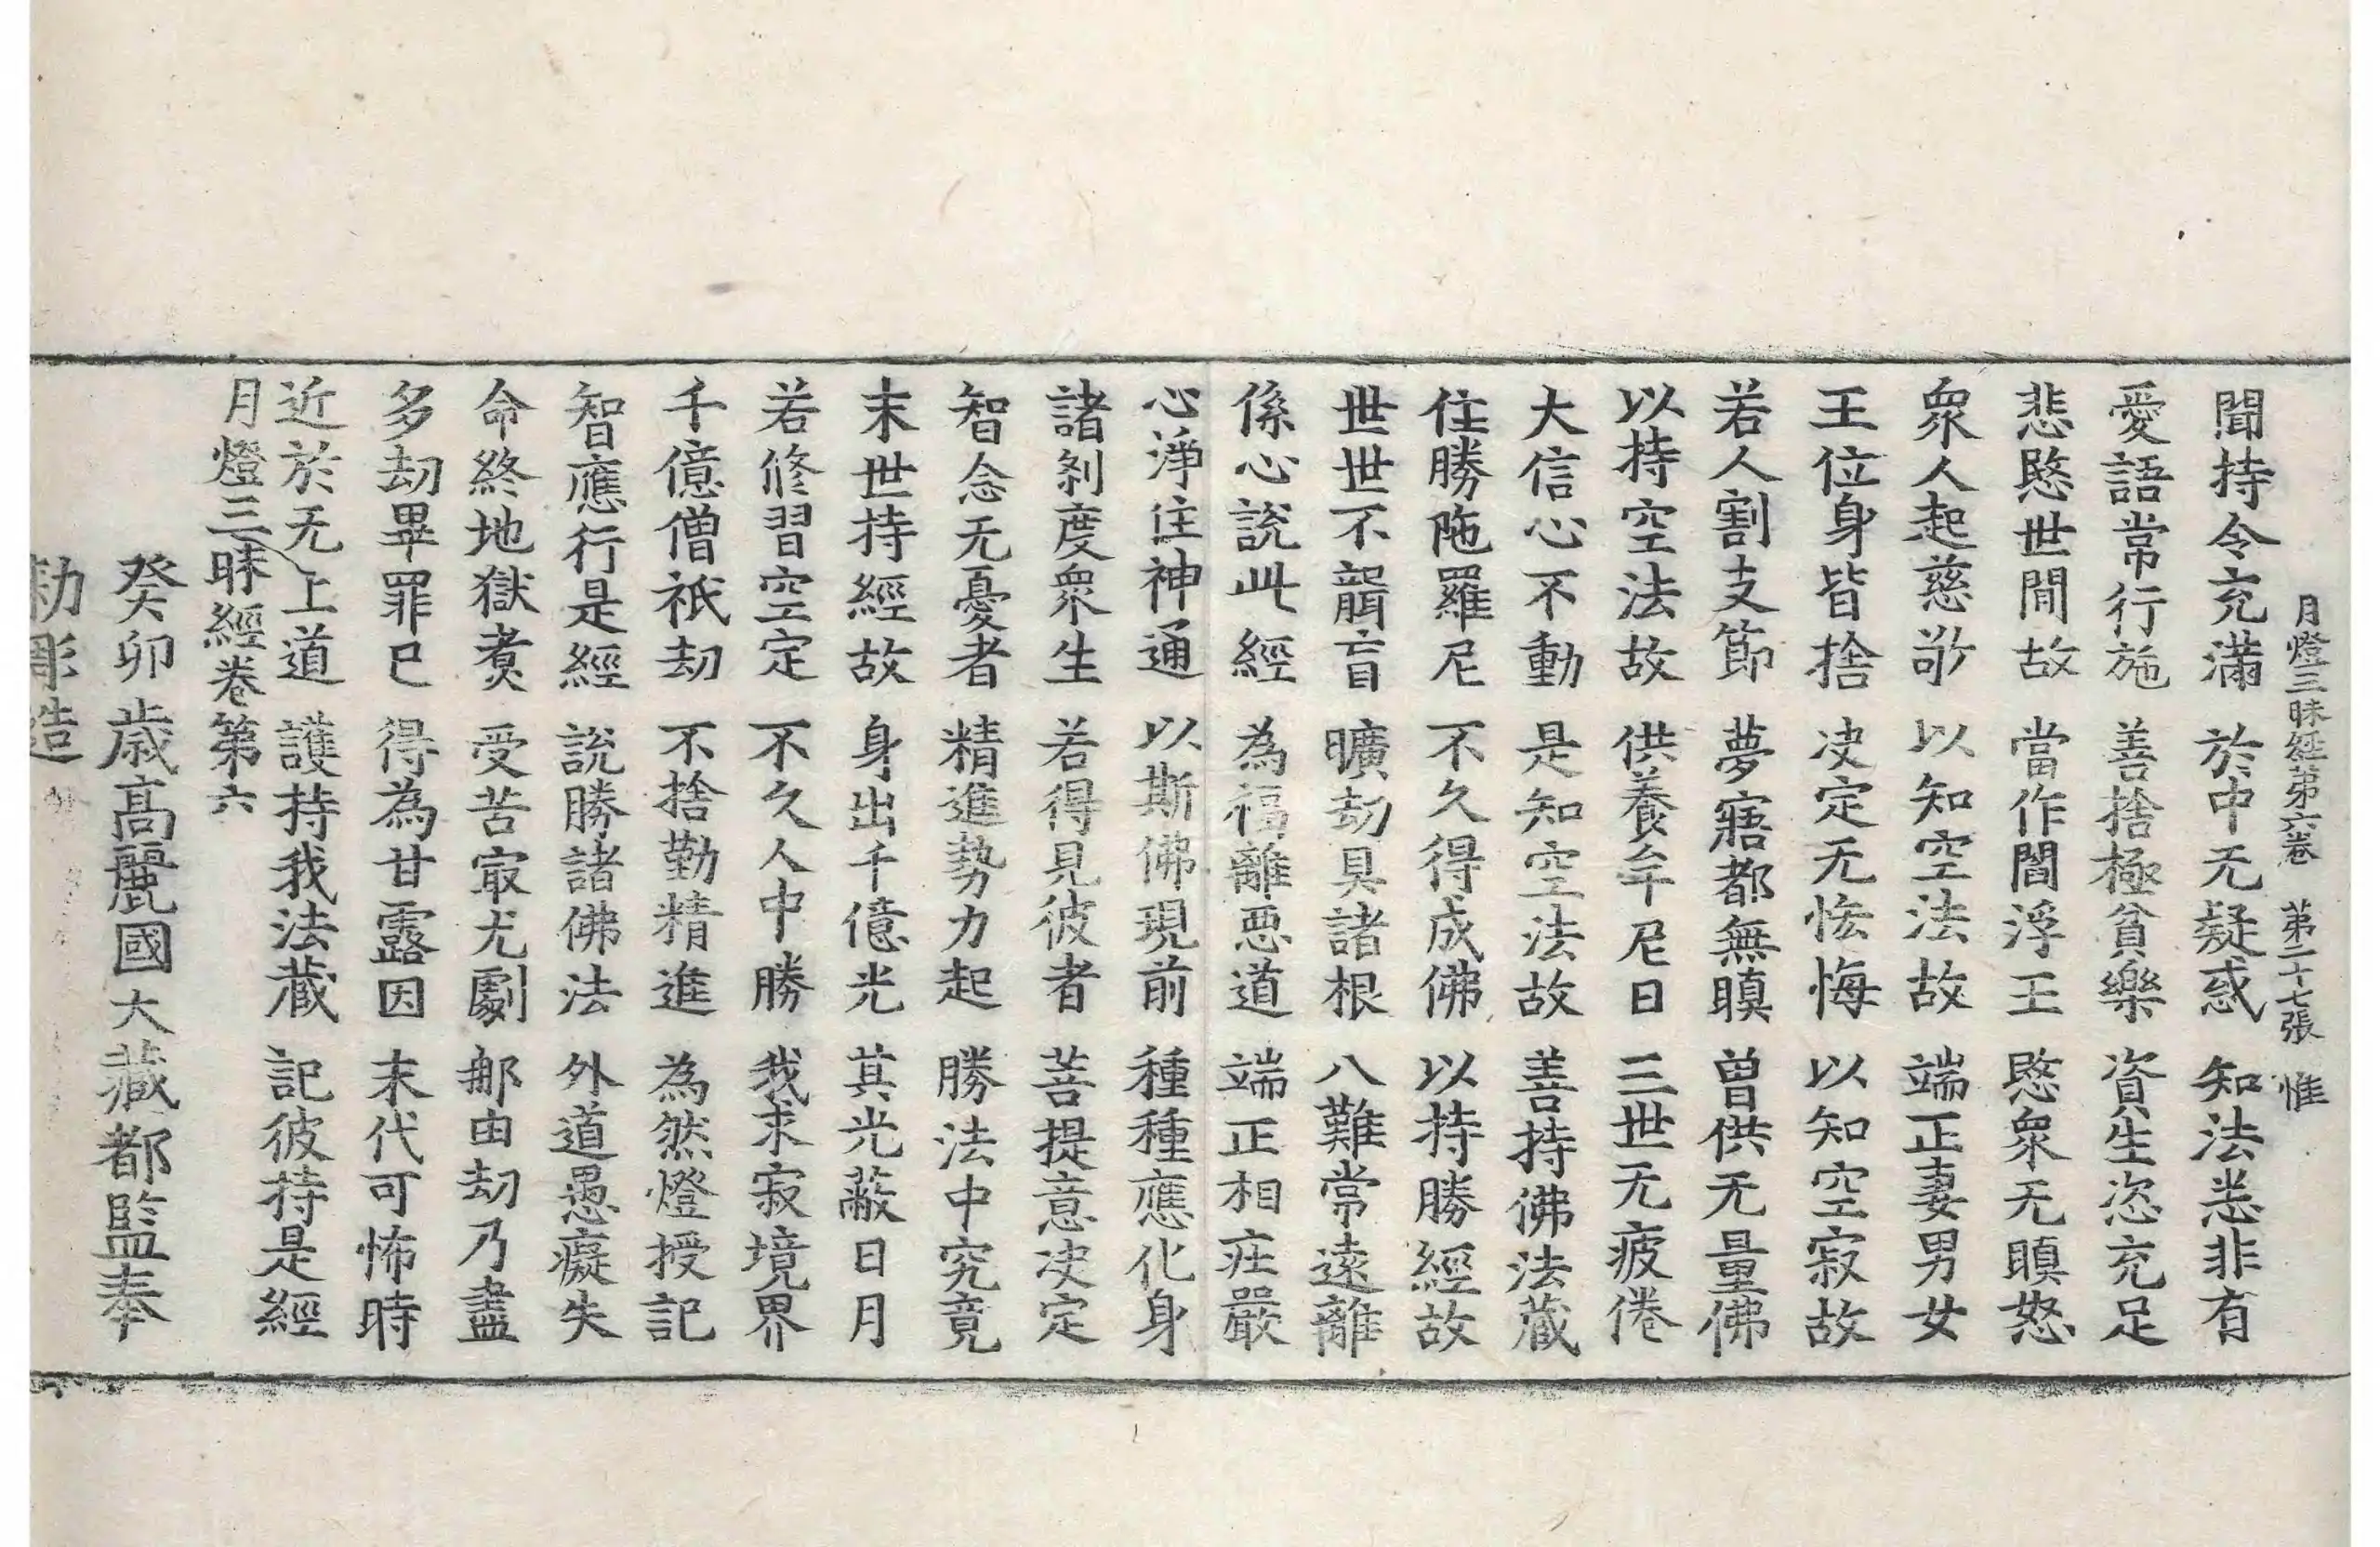 月燈三昧経第六卷　第二十七張　惟
聞持令充滿　於中无疑惑　知法悉非有
愛語常行施　善捨極貧樂　資生恣充足
悲愍世間故　當作閻浮王　愍衆无瞋怒
衆人起慈敬　以知空法故　端正妻男女
王位身皆捨　决定无恡悔　以知空寂故
若人割支節　夢寤都無瞋　曽供无量佛
以持空法故　供養牟尼日　三世无疲倦
大信心不動　是知空法故　善持佛法藏
住勝陁羅尼　不久得成佛　以持勝經故
世世不聾盲　曠劫具諸根　八難常遠離
係心說此經　為福離惡道　端正相庄嚴
心淨住神通　以斯佛現前　種種應化身
諸剎度衆生　若得見彼者　菩提意决定
智念无憂者　精進勢力起　勝法中究竟
末世持經故　身出千億光　其光蔽日月
若修習空定　不久人中勝　我求寂境界
千億僧祇劫　不捨勤精進　為然燈授記
智應行是經　說勝諸佛法　外道愚癡失
命終地獄煑　受苦冣尤劇　那由劫乃盡
多劫畢罪已　得為甘露因　末代可怖時
近於无上道　護持我法藏　記彼持是經
月燈三昧經卷第六
癸卯歲高麗國大藏都監奉
勑彫造